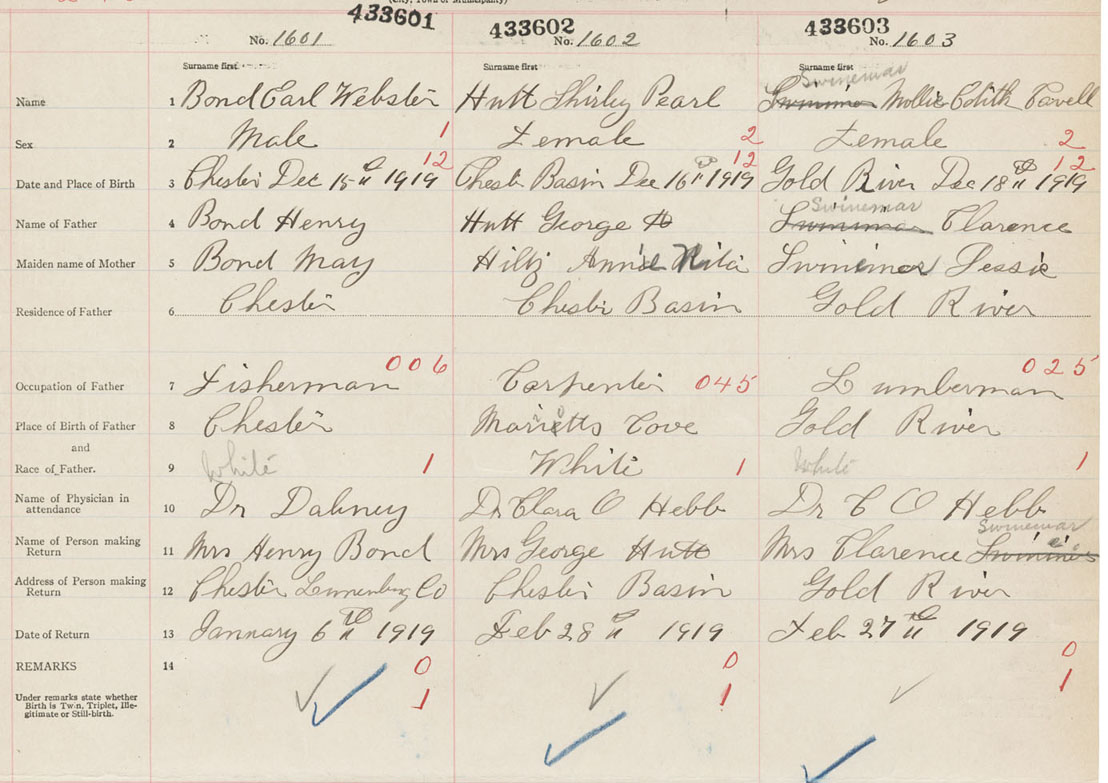 (City, Town or Municipality)
433601 433602 433603
No. 1601 No. 1602 No. 1603
Surname first Surname first Surname first
Swinemar
Name 1 Bond Earl Webster Hutt Shirley Pearl Mollie Edith Cavell
Sex 2 Male 1 Female 2 Female 2
12 12 12
Date and Place of Birth 3 Chester Dec 15th 1919 Chester Basin Dec 16th 1919 Gold River Dec 18th 1919
Swinemar
Name of Father 4 Bond Henry Hutt George Clarence
Maiden name of Mother 5 Bond May Hiltz Annie Nita Swinemar Dessie
Residence of Father 6 Chester Chester Basin Gold River
006 025
Occupation of Father 7 Fisherman Carpenter 045 Lumberman
Place of Birth of Father 8 Chester Marriotts Cove Gold River
and
Race of Father. 9 White 1 White 1 White 1
Name of Physician in
attendance 10 Dr Dabney Dr Clara O Hebb Dr C O Hebb
Swinemar
Name of Person making
Return 11 Mrs Henry Bond Mrs George Hutt Mrs Clarence
Address of Person making
Return 12 Chester Lunenburg Co Chester Basin Gold River
Date of Return 13 January 6th 1919 Feb 28th 1919 Feb 27th 1919
REMARKS 14 0 0 0
Under remarks state whether
Birth is Twin, Triplet, Ille-
gitimate or Still-birth.
1 1 1